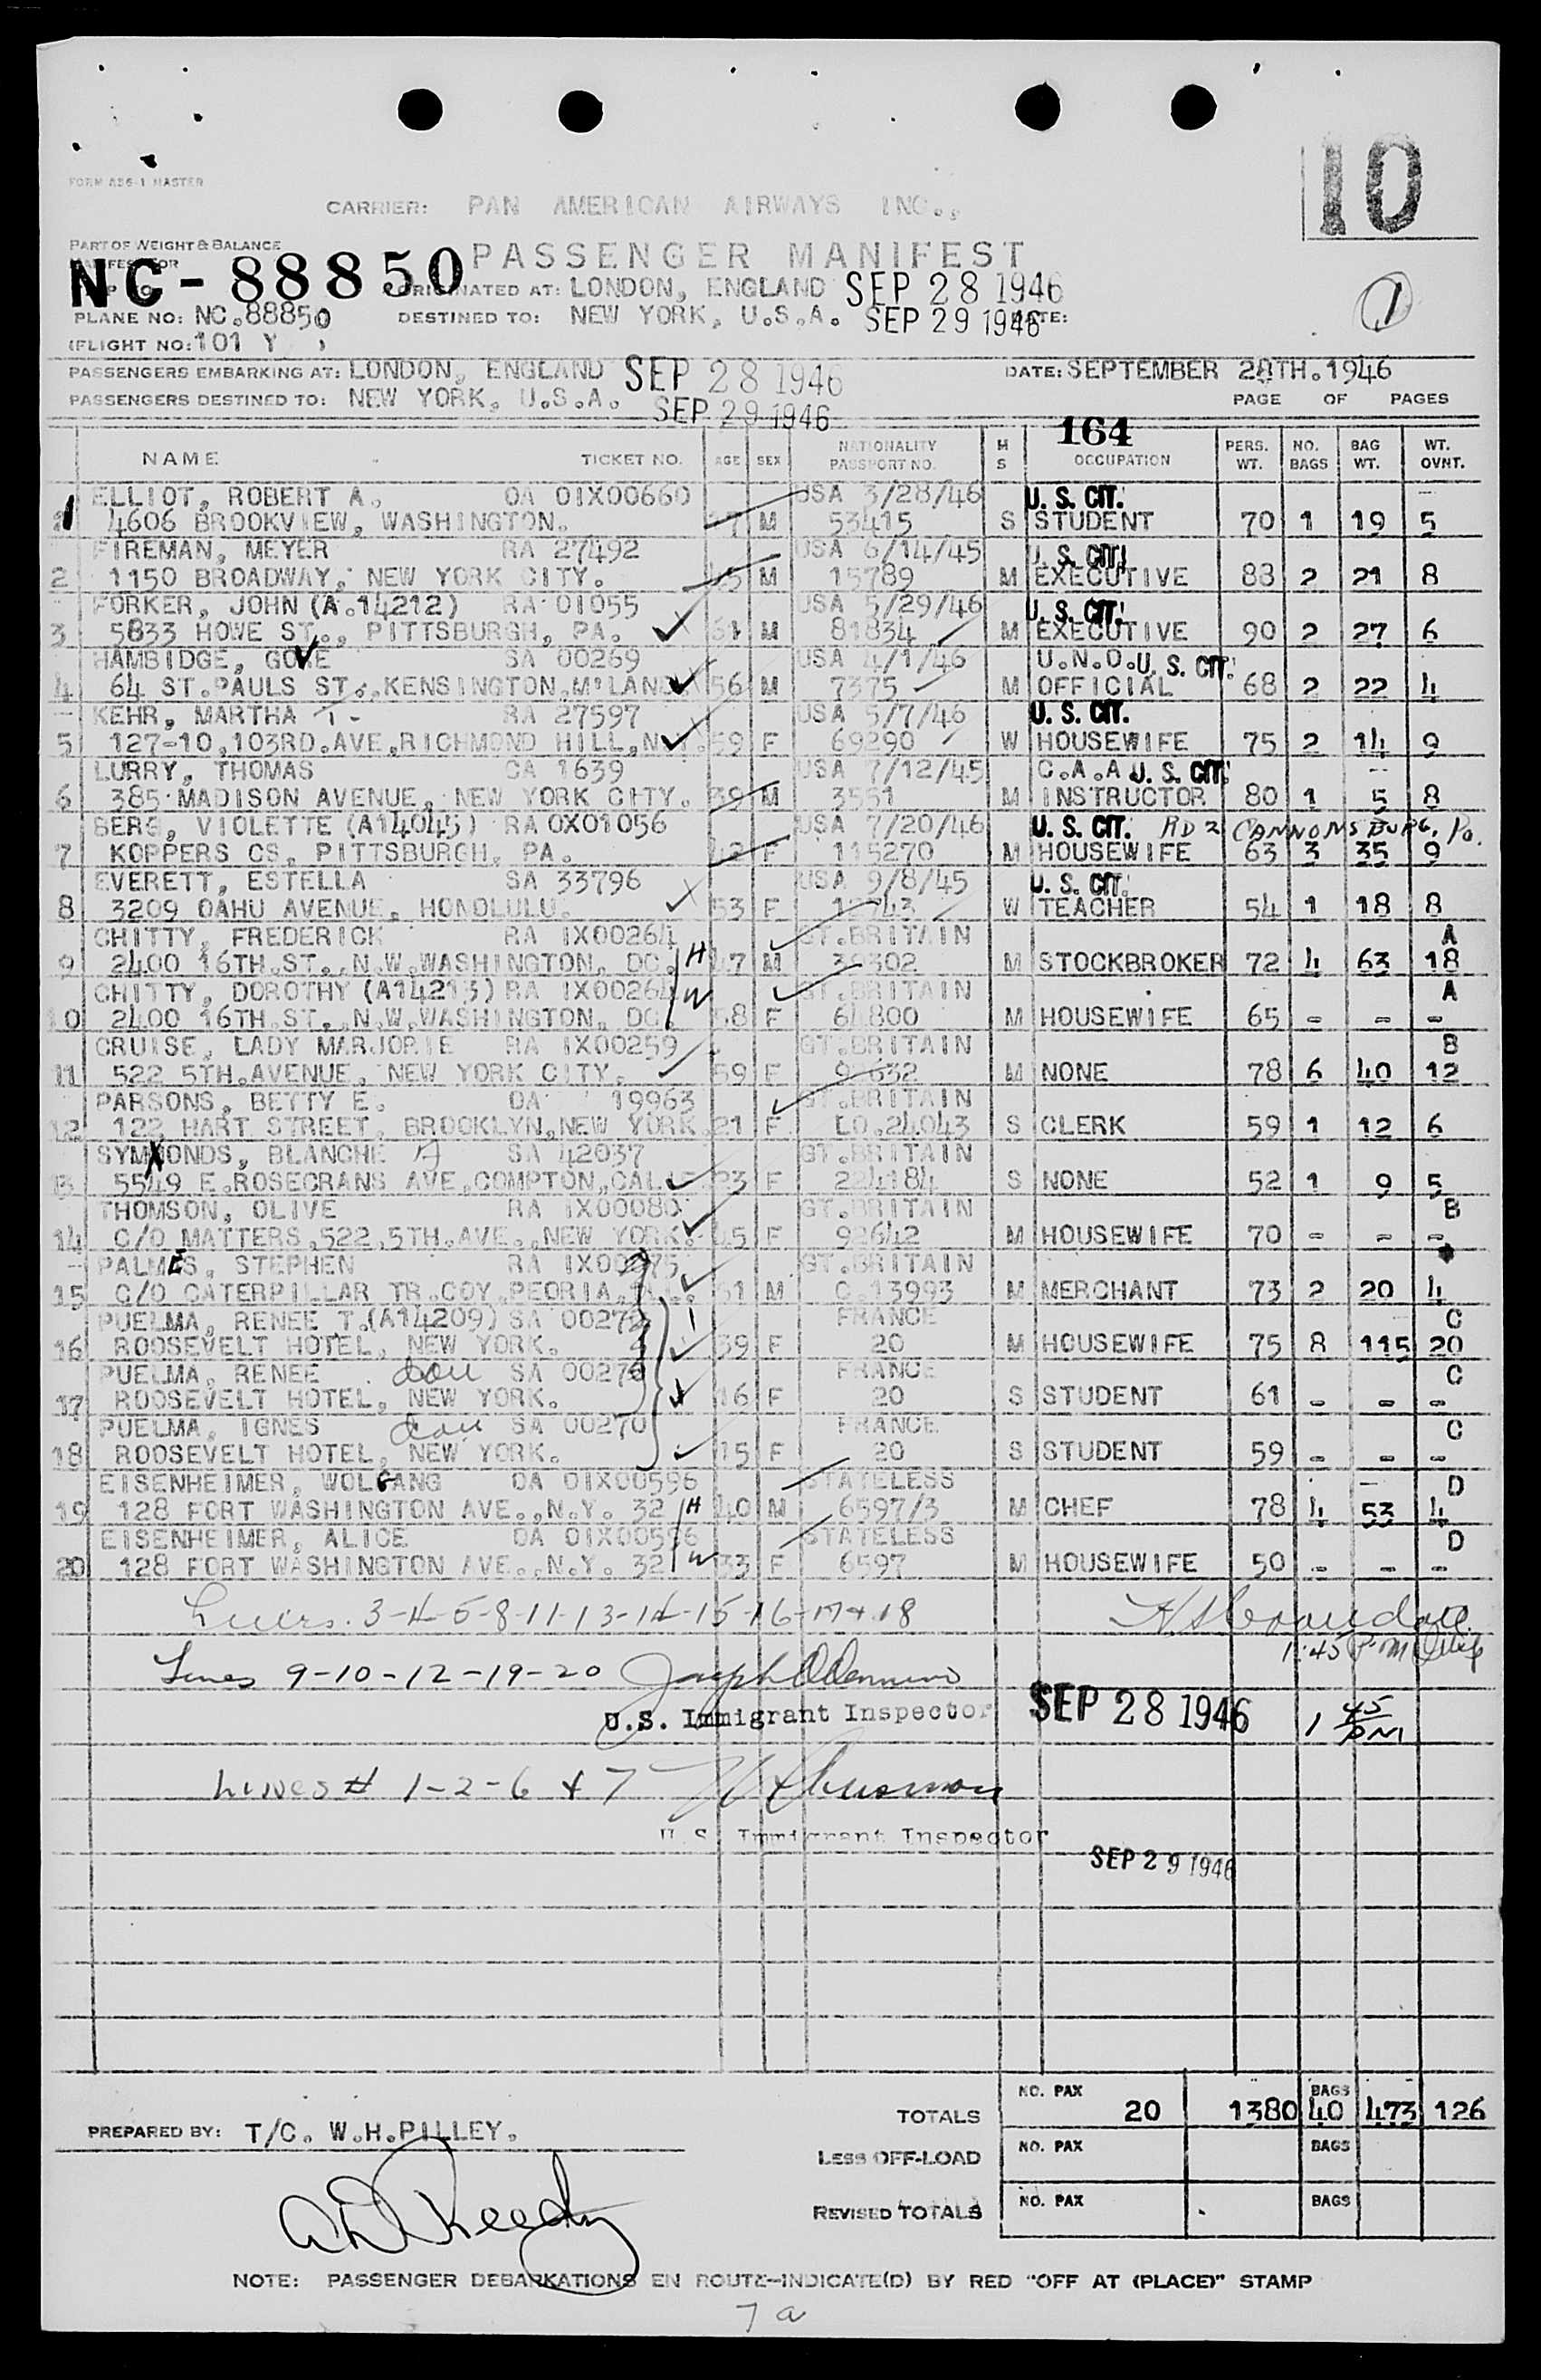 10
FORM 826-1 MASTER
CARRIER: PAN AMERICAN AIRWAYS INC.,
PART OF WEIGHT & BALANCE
NC-88850 PASSENGER MANIFEST
ORIGINATED AT: LONDON, ENGLAND SEP 28 1946
PLANE NO: NC.88850 DESTINED TO: NEW YORK, U.S.A. SEP 29 1946 DATE:
1
(FLIGHT NO: 101 Y )
PASSENGERS EMBARKING AT: LONDON, ENGLAND SEP 28 1946 DATE: SEPTEMBER 28TH.1946
PASSENGERS DESTINED TO: NEW YORK, U.S.A. SEP 29 1946 PAGE OF PAGES
164
NAME TICKET NO. AGE SEX NATIONALITY PASSPORT NO. M S OCCUPATION PERS. WT. NO. BAGS BAG WT. WT. OVNT.
ELLIOT, ROBERT A. OA 01X00660 USA 3/28/46 U. S. CIT.
1 4606 BROOKVIEW, WASHINGTON. 27 M 53415 S STUDENT 70 1 19 5
FIREMAN, MEYER RA 27492 USA 6/14/45 U. S. CIT.
2 1150 BROADWAY, NEW YORK CITY. 45 M 15789 M EXECUTIVE 83 2 21 8
FORKER, JOHN (A.14212) RA 01055 USA 5/29/46 U. S. CIT.
3 5833 HOWE ST., PITTSBURGH, PA. 61 M 81834 M EXECUTIVE 90 2 27 6
HAMBIDGE, GOVE SA 00269 USA 4/1/46 U.N.O. U. S. CIT.
4 64 ST.PAULS ST.,KENSINGTON,M'LAND 56 M 7375 M OFFICIAL 68 2 22 4
KEHR, MARTHA T. RA 27597 USA 5/7/46 U. S. CIT.
5 127-10,103RD.AVE,RICHMOND HILL,N.Y. 59 F 69290 W HOUSEWIFE 75 2 14 9
LURRY, THOMAS CA 1639 USA 7/12/45 C.A.A U. S. CIT.
6 385 MADISON AVENUE, NEW YORK CITY. 39 M 3551 M INSTRUCTOR 80 1 5 8
BERG, VIOLETTE (A14045) RA 0X01056 USA 7/20/46 U. S. CIT. RD 2 CANNONSBURG, Pa.
7 KOPPERS CS, PITTSBURGH, PA. 42 F 115270 M HOUSEWIFE 63 3 35 9
EVERETT, ESTELLA SA 33796 USA 9/8/45 U. S. CIT.
8 3209 OAHU AVENUE, HONOLULU. 53 F 12743 W TEACHER 54 1 18 8
CHITTY, FREDERICK RA IX00264 GT.BRITAIN A
9 2400 16TH.ST.,N.W.WASHINGTON, DC. H 47 M 30302 M STOCKBROKER 72 4 63 18
CHITTY, DOROTHY (A14213) RA IX00264 W GT.BRITAIN A
10 2400 16TH.ST.,N.W.WASHINGTON, DC. 58 F 64800 M HOUSEWIFE 65 - - -
CRUISE, LADY MARJORIE RA IX00259 GT.BRITAIN B
11 522 5TH.AVENUE, NEW YORK CITY. 59 F 92632 M NONE 78 6 40 12
PARSONS, BETTY E. OA 19963 GT.BRITAIN
12 122 HART STREET, BROOKLYN,NEW YORK. 21 F LO.24043 S CLERK 59 1 12 6
SYMMONDS, BLANCHE A SA 42037 GT.BRITAIN
13 5549 E.ROSECRANS AVE,COMPTON,CALIF 23 F 224184 S NONE 52 1 9 5
THOMSON, OLIVE RA IX00080 GT.BRITAIN B
14 C/O MATTERS,522,5TH.AVE.,NEW YORK. 45 F 92642 M HOUSEWIFE 70 - - -
PALMES, STEPHEN RA IX00275 GT.BRITAIN
15 C/O CATERPILLAR TR.COY,PEORIA,ILL. 61 M C.13993 M MERCHANT 73 2 20 4
PUELMA, RENEE T.(A14209) SA 00272 FRANCE C
16 ROOSEVELT HOTEL, NEW YORK. 39 F 20 M HOUSEWIFE 75 8 115 20
PUELMA, RENEE dau SA 00270 FRANCE C
17 ROOSEVELT HOTEL, NEW YORK. 16 F 20 S STUDENT 61 - - -
PUELMA, IGNES dau SA 00270 FRANCE C
18 ROOSEVELT HOTEL, NEW YORK. 15 F 20 S STUDENT 59 - - -
EISENHEIMER, WOLFGANG OA 01X00596 STATELESS D
19 128 FORT WASHINGTON AVE.,N.Y. 32 H 40 M 6597/3 M CHEF 78 4 53 4
EISENHEIMER, ALICE OA 01X00596 STATELESS D
20 128 FORT WASHINGTON AVE.,N.Y. 32 W 33 F 6597 M HOUSEWIFE 50 - - -
Lines 3-4-5-8-11-13-14-15-16-17+18
1:45 P.M.
Lines 9-10-12-19-20
U.S. Immigrant Inspector SEP 28 1946 1 45 PM
Lines # 1-2-6 + 7
U.S. Immigrant Inspector
SEP 29 1946
TOTALS NO. PAX 20 1380 BAGS 40 473 126
PREPARED BY: T/C. W.H.PILLEY.
LESS OFF-LOAD NO. PAX BAGS
REVISED TOTALS NO. PAX BAGS
NOTE: PASSENGER DEBARKATIONS EN ROUTE-INDICATE(D) BY RED "OFF AT (PLACE)" STAMP
7 a